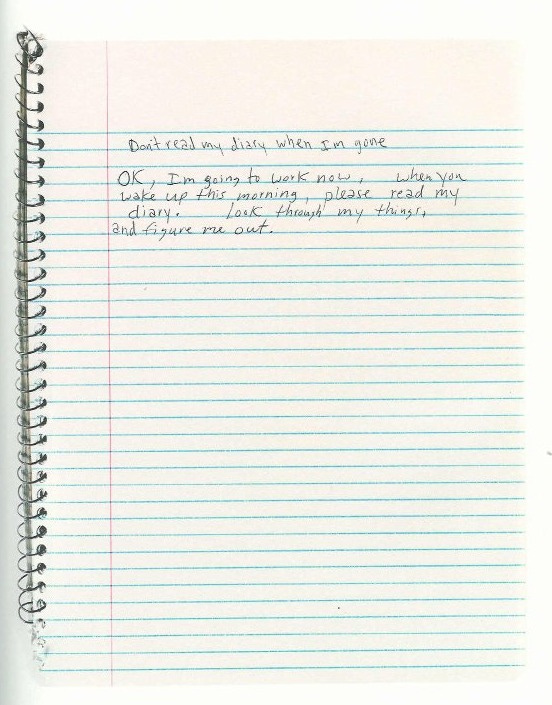 Don't read my diary when I'm gone
OK, I'm going to work now, when you
wake up this morning, please read my
diary. look through my things,
and figure me out.